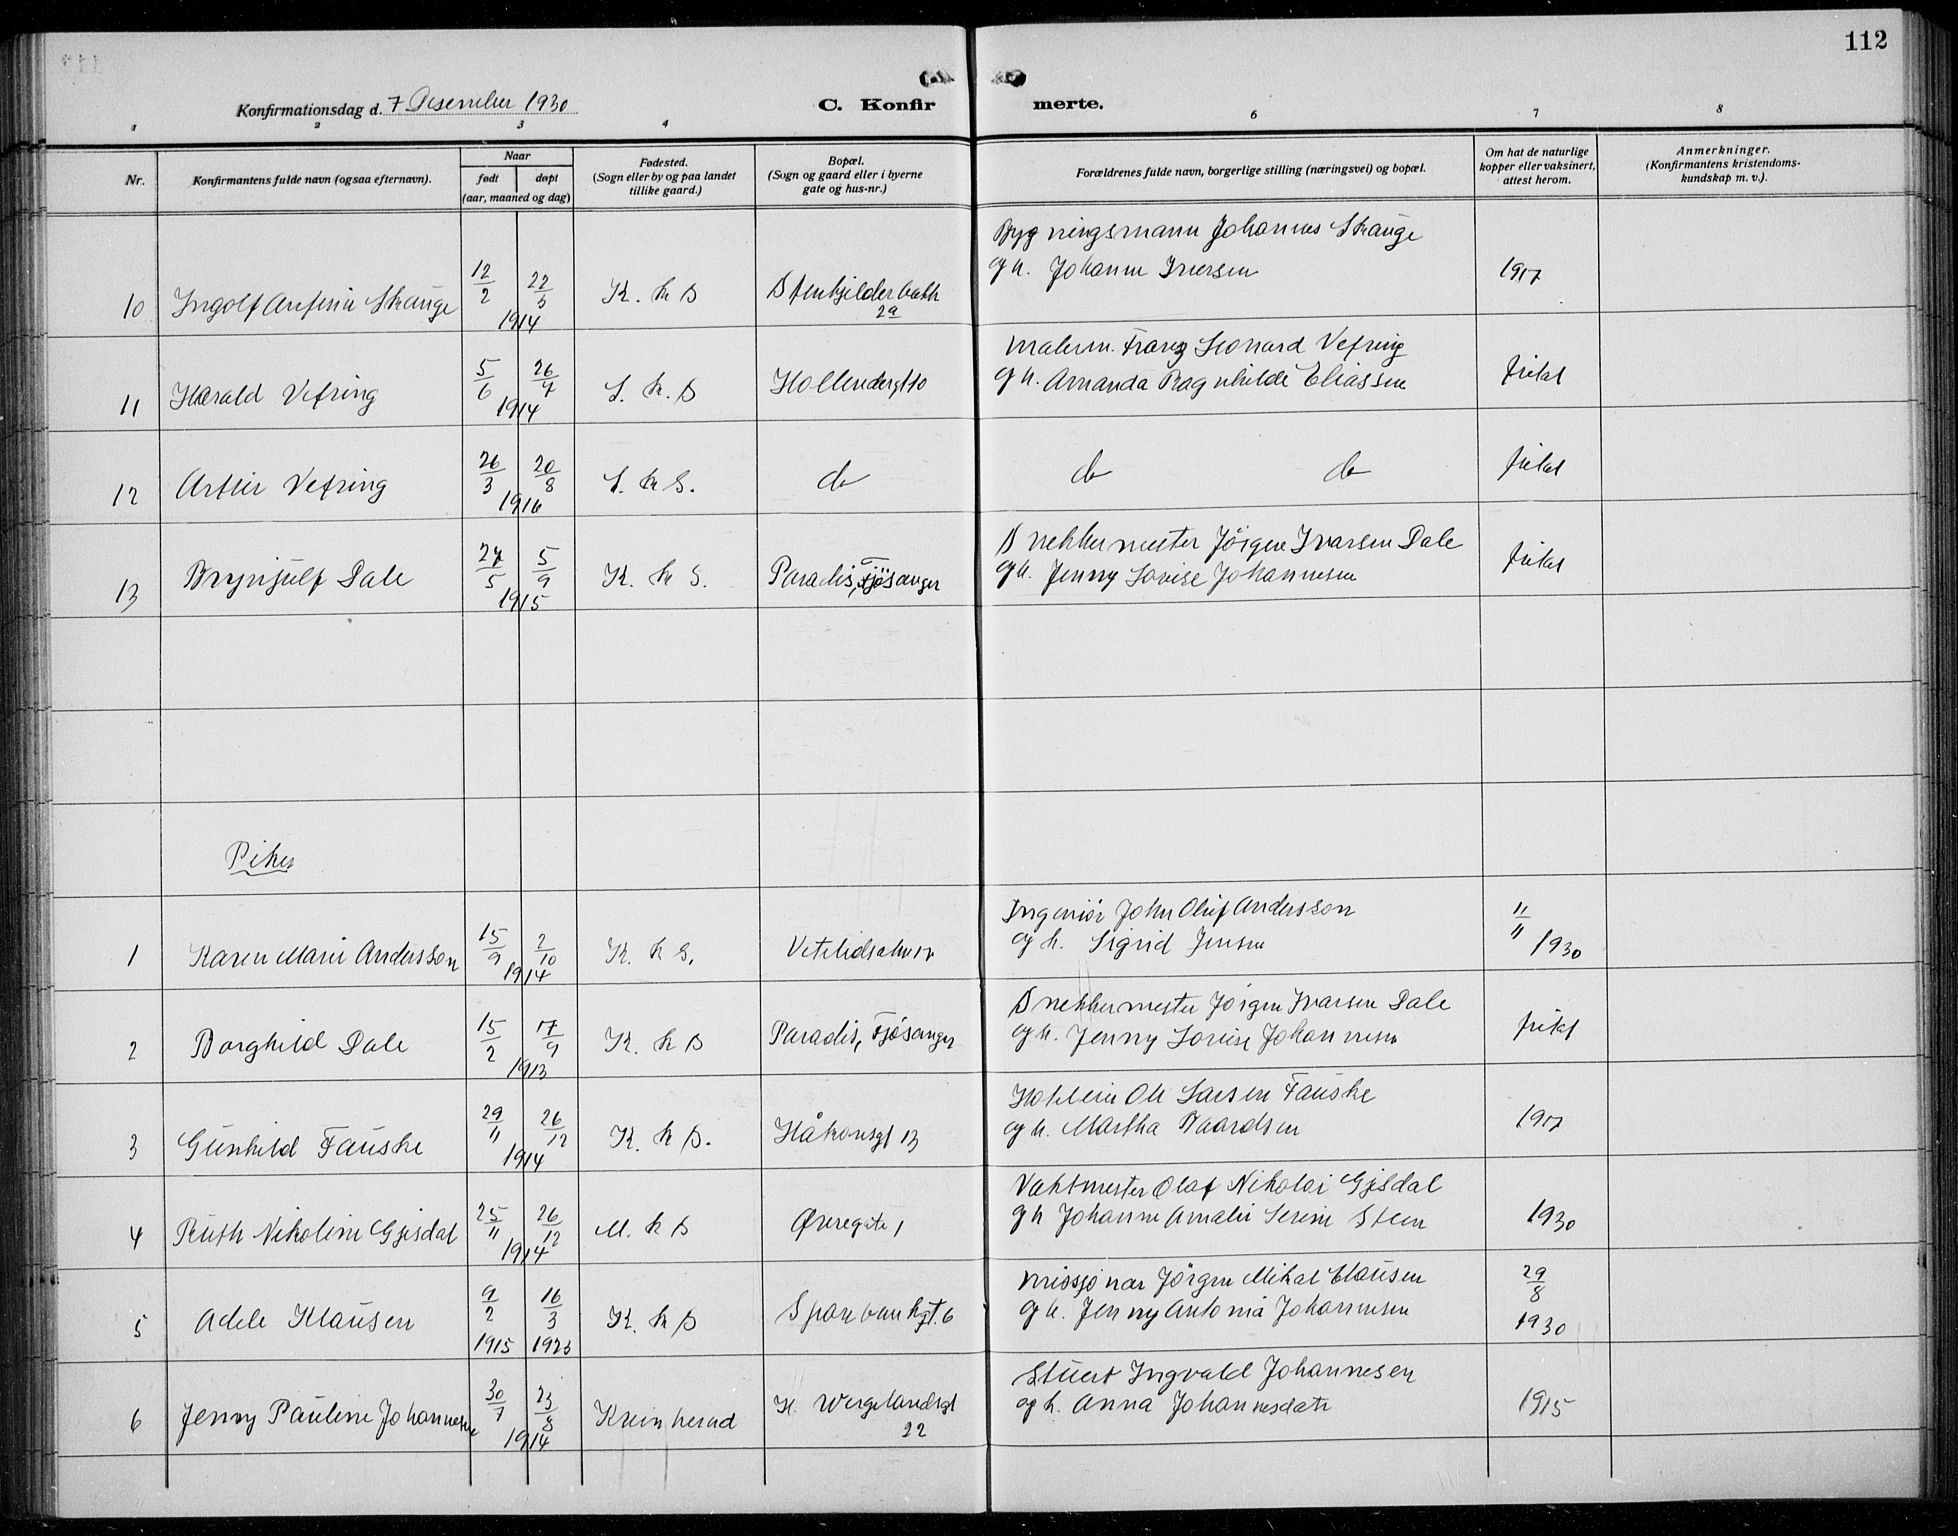 112
Konfirmationsdag d. 7 Desember 1930
C. Konfirmerte.
1 2 3 4 6 7 8
Nr.
Konfirmantens fulde navn (ogsaa efternavn).
Naar
født døpt
(aar, maaned og dag)
Fødested.
(Sogn eller by og paa landet
tillike gaard.)
Bopæl.
(Sogn og gaard eller i byerne
gate og hus-nr.)
Forældrenes fulde navn, borgerlige stilling (næringsvei) og bopæl.
Om hat de naturlige
kopper eller vaksinert,
attest herom.
Anmerkninger.
(Konfirmantens kristendoms-
kundskap m. v.).
Bygningsmann Johannes Skauge
og h. Johanne Iversen
10 Ingolf Skauge 12/2 22/3 1914 K. k B 2a 1917
Malerm. Franz Leonard Vefring
og h. Amanda Ragnhilde Eliassen
11 Harald Vefring 5/6 26/7 1914 S. k. B Hollendergt 10 friket
12 Artur Vefring 26/3 20/8 1916 S. k B. do do do friket
Snekkermester Jörgen Ivarsen Dale
og h. Jenny Lovise Johannesen
13 Brynjulf Dale 27/5 5/9 1915 K. k B. Paradis, Fjösanger friket
Piker
Ingeniör John Oluf Andersson
og h. Sigrid Jensen
1 Karen Marie Andersson 15/9 2/10 1914 K. k B. 11/11 1930
Snekkermester Jörgen Ivarsen Dale
og h. Jenny Lovise Johannesen
2 Borghild Dale 15/2 17/9 1913 K. k B Paradis, Fjösanger friket
Ole Larsen Fauske
og h. Martha Baardsen
3 Gunhild Fauske 29/11 26/12 1914 K. k B. Håkonsgt 13 1917
Vaktmester Olaf Nikolai Gjesdal
og h Johanne Amalie Serine Steen
4 Ruth Nikoline Gjesdal 25/11 26/12 1914 M. k B Øvregate 1 1930
Missjonær Jörgen Mikal Clausen
og h. Jenny Antonia Johannesen
5 Adele Klausen 9/2 1915 16/3 1923 K. k B Sparebankgt. 6 29/8 1930
Stuert Ingvald Johannesen
og h. Anna Johannesdatr
6 Jenny Pauline Johannesen 30/7 23/8 1914 Kvinherad H. Wergelandsgt 22 1915